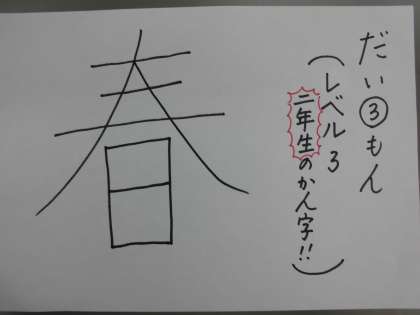 だい③もん
(レベル3
二年生のかん字!!)
春